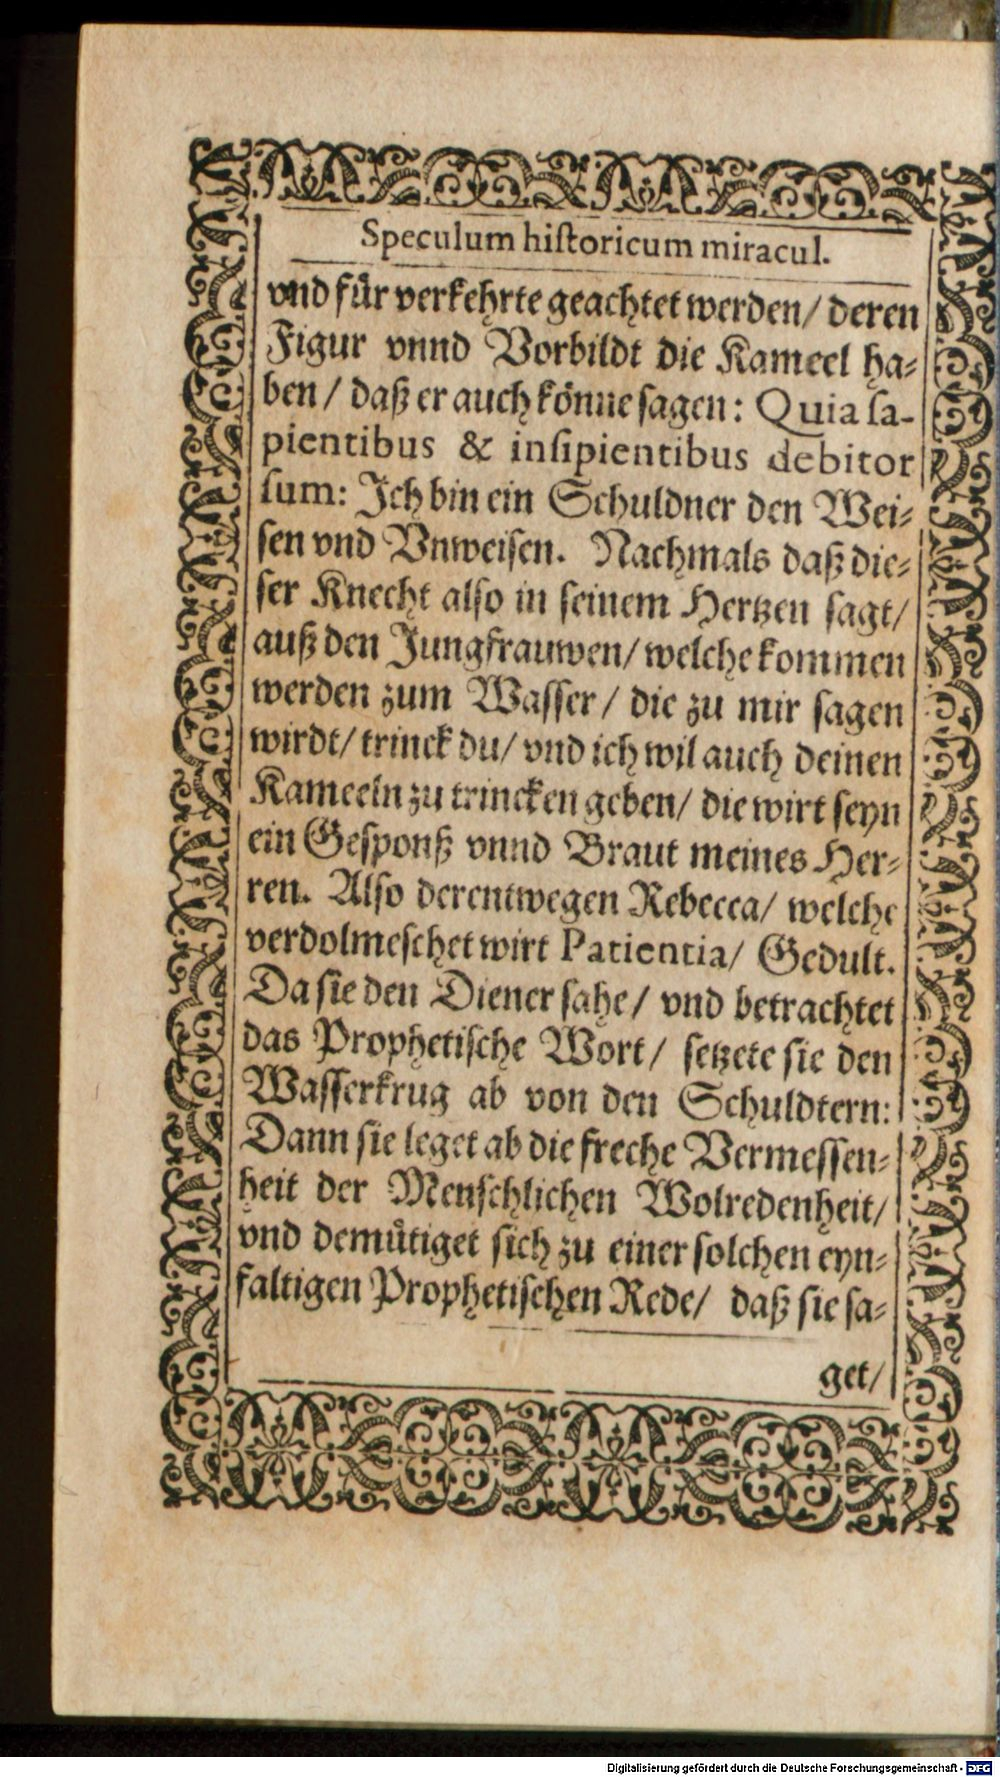 Speculum hiſtoricum miracul.
vnd fuͤr verkehrte geachtet werden/ deren
Figur vnnd Vorbildt die Kameel ha⸗
ben/ daß er auch koͤnne ſagen: Quia ſa-
pientibus & inſipientibus debitor
ſum: Ich bin ein Schuldner den Wei⸗
ſen vnd Vnweiſen. Nachmals daß die⸗
ſer Knecht alſo in ſeinem Hertzen ſagt/
auß den Jungfrauwen/ welche kommen
werden zum Waſſer/ die zu mir ſagen
wirdt/ trinck du/ vnd ich wil auch deinen
Kameeln zu trincken geben/ die wirt ſeyn
ein Geſponß vnnd Braut meines Her⸗
ren. Alſo derentwegen Rebecca/ welche
verdolmeſchet wirt Patientia/ Gedult.
Da ſie den Diener ſahe/ vnd betrachtet
das Prophetiſche Wort/ ſetzete ſie den
Waſſerkrug ab von den Schuldtern:
Dann ſie leget ab die freche Vermeſſen⸗
heit der Menſchlichen Wolredenheit/
vnd demuͤtiget ſich zu einer ſolchen eyn⸗
faltigen Prophetiſchen Rede/ daß ſie ſa⸗
get/
Digitalisierung gefördert durch die Deutsche Forschungsgemeinschaft - DFG